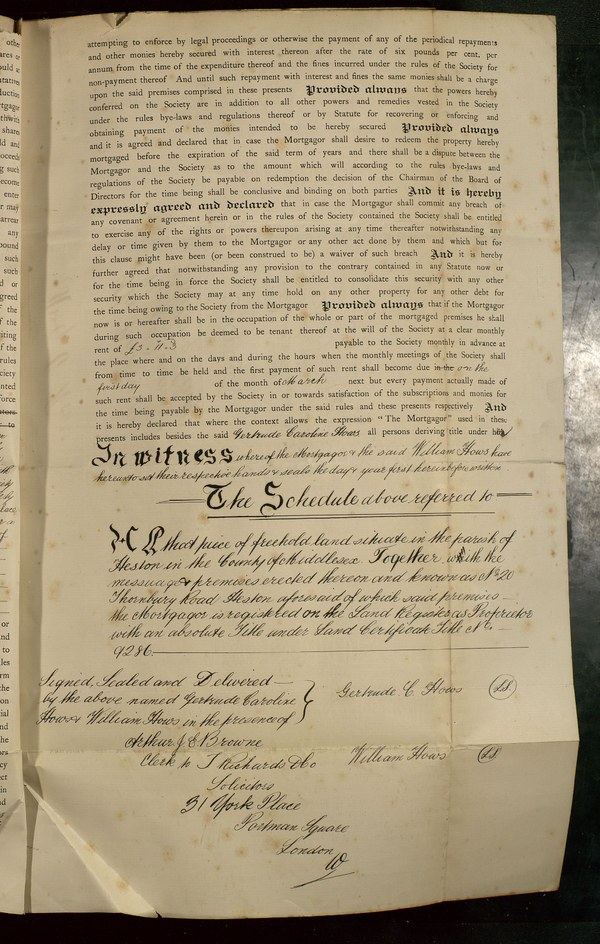 attempting to enforce by legal proceedings or otherwise the payment of any of the periodical repayments
and other monies hereby secured with interest thereon after the rate of six pounds per cent. per
annum from the time of the expenditure thereof and the fines incurred under the rules of the Society for
non-payment thereof And until such repayment with interest and fines the same monies shall be a charge
upon the said premises comprised in these presents Provided always that the powers hereby
conferred on the Society are in addition to all other powers and remedies vested in the Society
under the rules bye-laws and regulations thereof or by Statute for recovering or enforcing and
obtaining payment of the monies intended to be hereby secured Provided always
and it is agreed and declared that in case the Mortgagor shall desire to redeem the property hereby
mortgaged before the expiration of the said term of years and there shall be a dispute between the
Mortgagor and the Society as to the amount which will according to the rules bye-laws and
regulations of the Society be payable on redemption the decision of the Chairman of the Board of
Directors for the time being shall be conclusive and binding on both parties And it is hereby
expressly agreed and declared that in case the Mortgagor shall commit any breach of
any covenant or agreement herein or in the rules of the Society contained the Society shall be entitled
to exercise any of the rights or powers thereupon arising at any time thereafter notwithstanding any
delay or time given by them to the Mortgagor or any other act done by them and which but for
this clause might have been (or been construed to be) a waiver of such breach And it is hereby
further agreed that notwithstanding any provision to the contrary contained in any Statute now or
for the time being in force the Society shall be entitled to consolidate this security with any other
security which the Society may at any time hold on any other property for any other debt for
the time being owing to the Society from the Mortgagor Provided always that if the Mortgagor
now is or hereafter shall be in the occupation of the whole or part of the mortgaged premises he shall
during such occupation be deemed to be tenant thereof at the will of the Society at a clear monthly
rent of £3-11-3 payable to the Society monthly in advance at
the place where and on the days and during the hours when the monthly meetings of the Society shall
from time to time be held and the first payment of such rent shall become due in the on the
first day of the month of March next but every payment actually made of
such rent shall be accepted by the Society in or towards satisfaction of the subscriptions and monies for
the time being payable by the Mortgagor under the said rules and these presents respectively And
it is hereby declared that where the context allows the expression "The Mortgagor" used in these
presents includes besides the said Gertrude Caroline Hows all persons deriving title under her
In witness whereof the Mortgagor & the said William Hows have
hereunto set their respective hands & seals the day & year first hereinbefore written
The Schedule above referred to
All that piece of freehold land situate in the parish of
Heston in the County of Middlesex Together with the
messuage & premises erected thereon and known as No 20
Thornbury Road Heston aforesaid of which said premises
the Mortgagor is registered on the Land Register as Proprietor
with an absolute Title under Land Certificate Title No.
9286.
Signed, Sealed and Delivered
by the above named Gertrude Caroline
Hows & William Hows in the presence of
Gertrude C. Hows LS
Arthur J. E. Browne
Clerk to J Richards & Co
William Hows LS
Solicitors
31 York Place
Portman Square
London
W